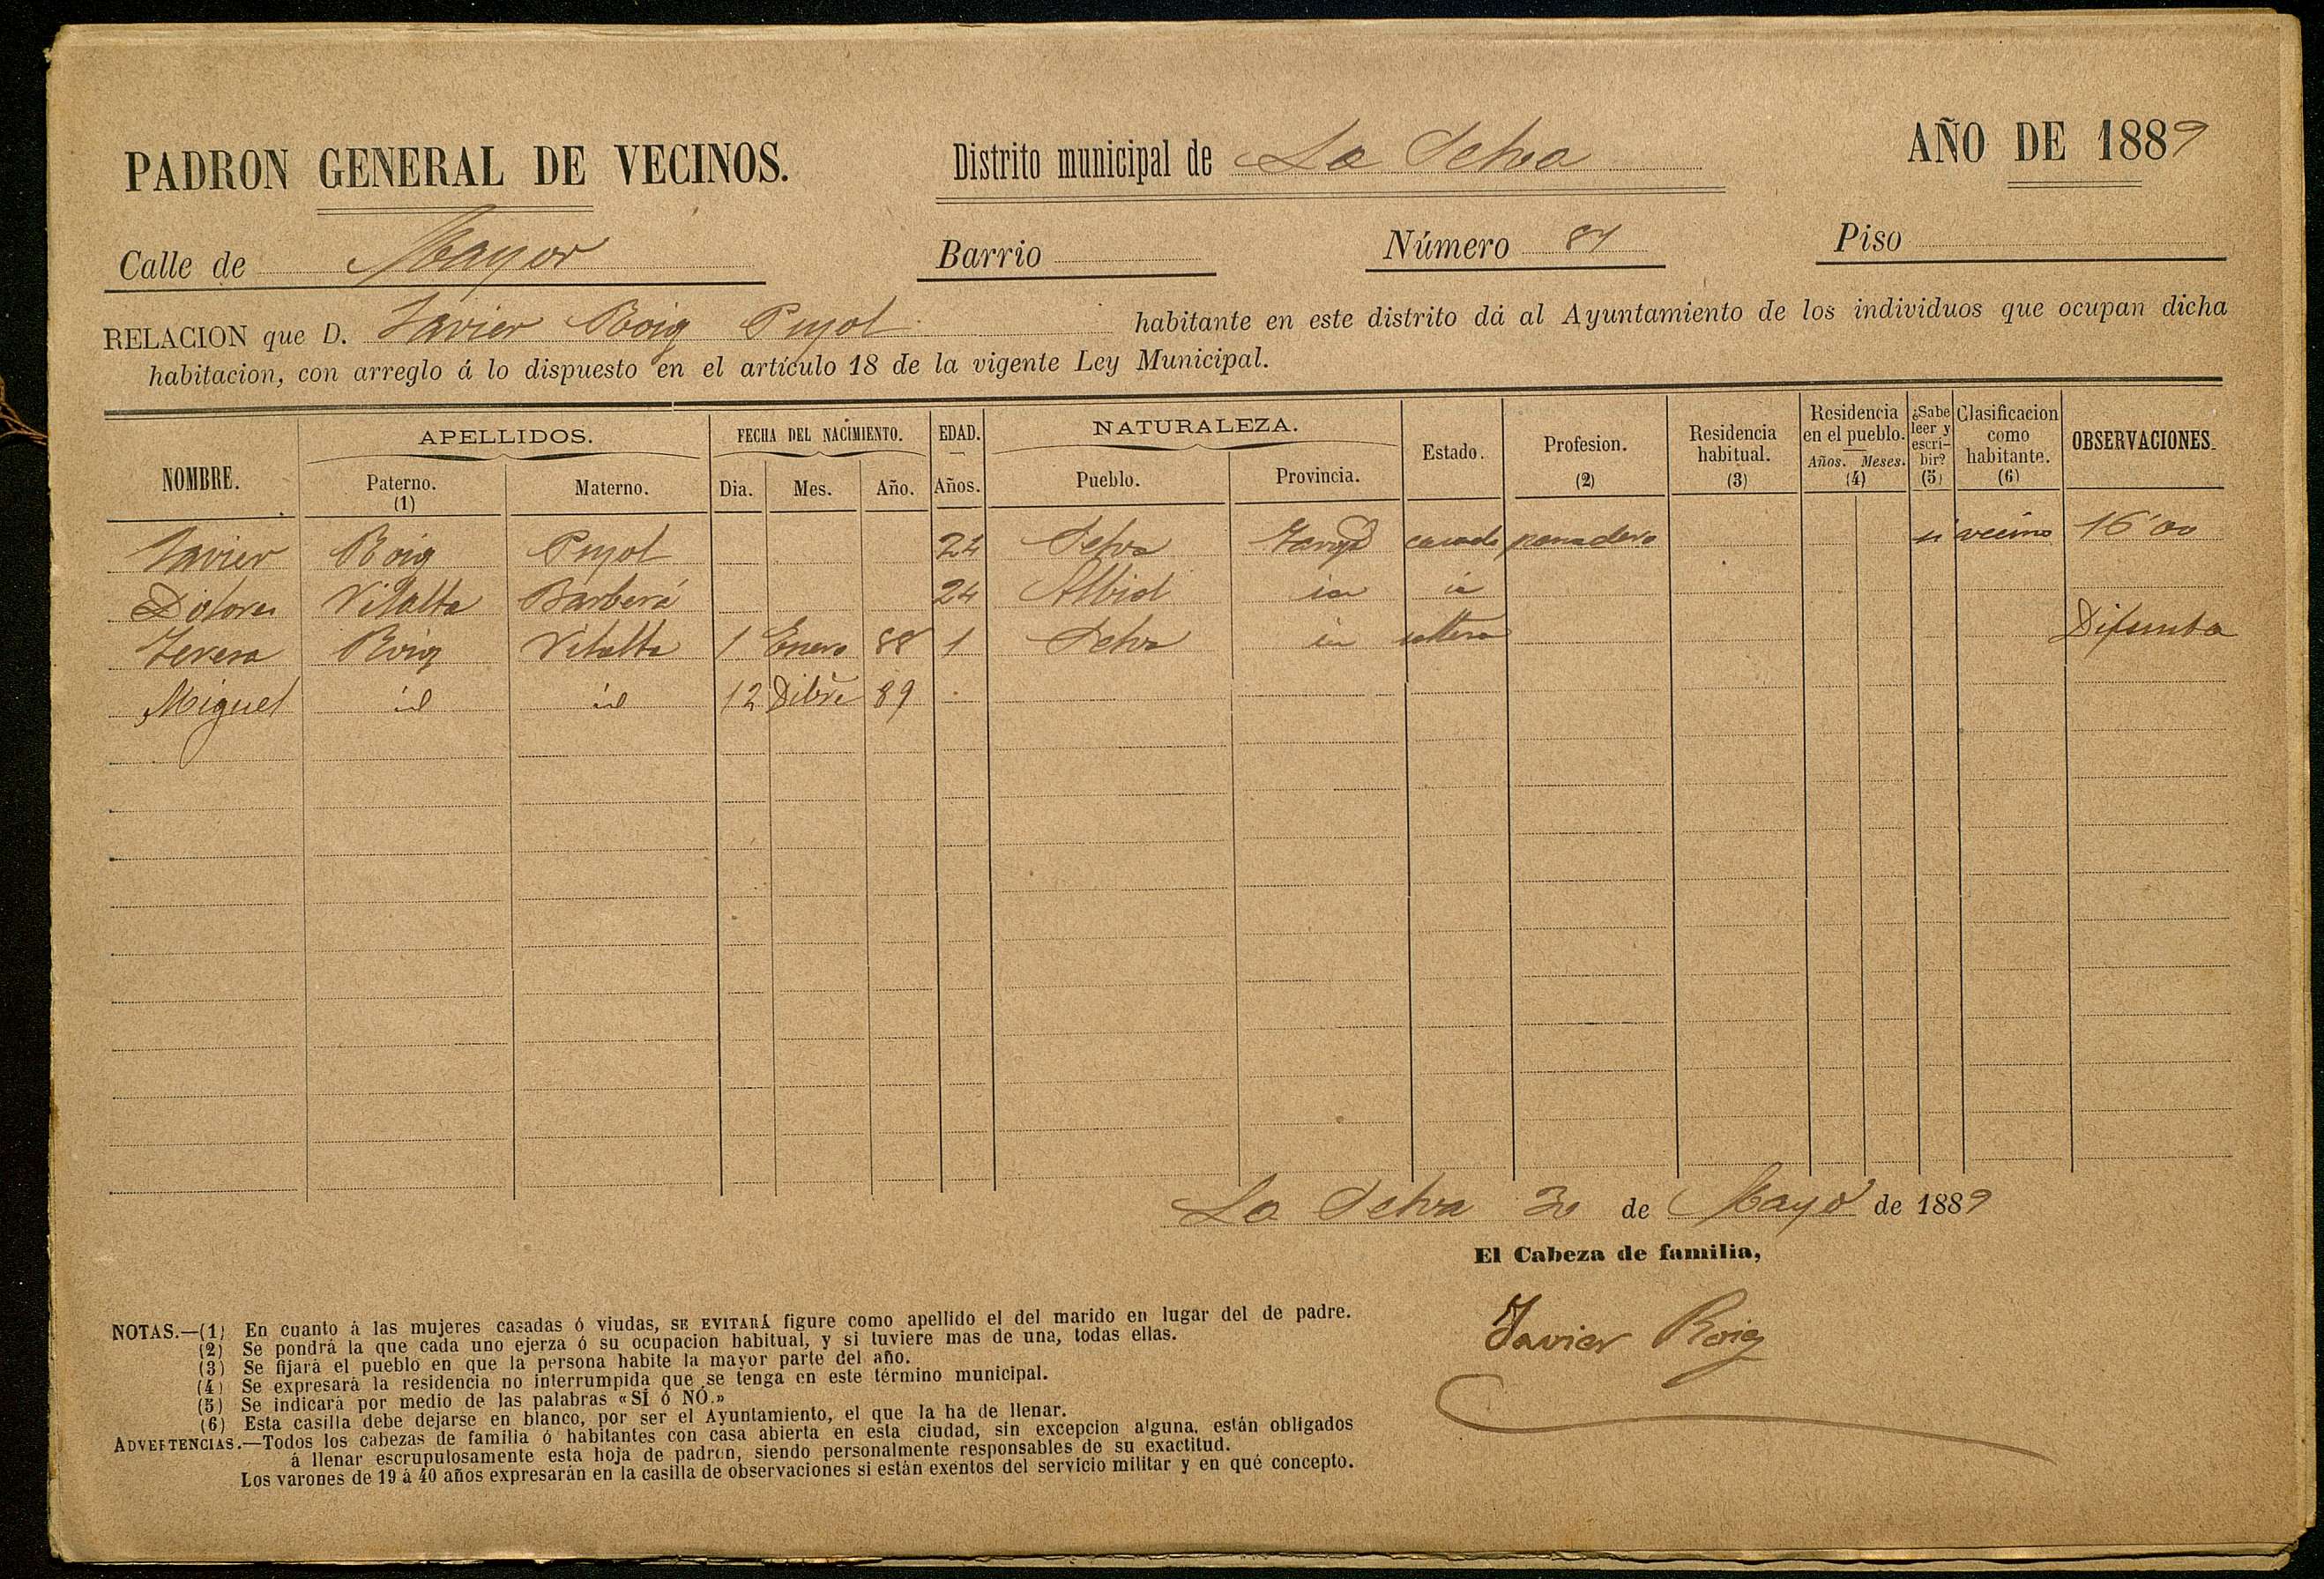 PADRON GENERAL DE VECINOS. Distrito municipal de La Selva AÑO DE 1889
Calle de Mayor Barrio Número 87 Piso
RELACION que D. Xavier Roig Pujol habitante en este distrito dá al Ayuntamiento de los individuos que ocupan dicha
habitacion, con arreglo á lo dispuesto en el artículo 18 de la vigente Ley Municipal.
NOMBRE. APELLIDOS. FECHA DEL NACIMIENTO. EDAD. NATURALEZA. Estado. Profesion. (2) Residencia habitual. (3) Residencia en el pueblo. Años. Meses. (4) ¿Sabe leer y escribir? (5) Clasificacion como habitante. (6) OBSERVACIONES.
Paterno. (1) Materno. Dia. Mes. Año. Años. Pueblo. Provincia.
Xavier Roig Pujol 24 Selva Tarrgª casado panadero si vecino 16'00
Dolores Vilalta Barberá 24 Albiol id id
Teresa Roig Vilalta 1 Enero 88 1 Selva id soltera Difunta
Miguel id id 12 Dibre 89
La Selva 30 de Mayo de 1889
El Cabeza de familia,
Xavier Roig
NOTAS.—(1) En cuanto á las mujeres casadas ó viudas, SE EVITARÁ figure como apellido el del marido en lugar del de padre.
(2) Se pondrá la que cada uno ejerza ó su ocupacion habitual, y si tuviere mas de una, todas ellas.
(3) Se fijará el pueblo en que la persona habite la mayor parte del año.
(4) Se expresará la residencia no interrumpida que se tenga en este término municipal.
(5) Se indicará por medio de las palabras «SÍ ó NÓ.»
(6) Esta casilla debe dejarse en blanco, por ser el Ayuntamiento, el que la ha de llenar.
ADVERTENCIAS.—Todos los cabezas de familia ó habitantes con casa abierta en esta ciudad, sin excepcion alguna, están obligados
á llenar escrupulosamente esta hoja de padron, siendo personalmente responsables de su exactitud.
Los varones de 19 á 40 años expresarán en la casilla de observaciones si están exentos del servicio militar y en qué concepto.